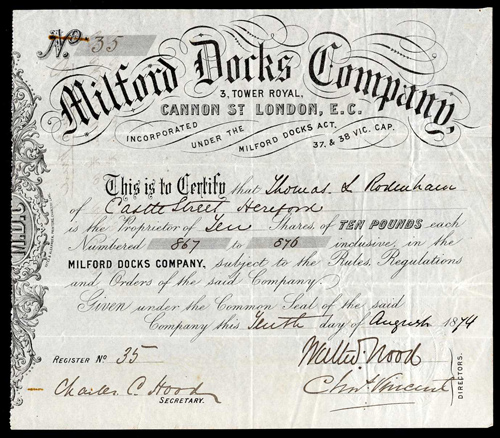 No. 35
Milford Docks Company,
3, TOWER ROYAL,
CANNON ST LONDON, E.C.
INCORPORATED UNDER THE MILFORD DOCKS ACT, 37. & 38 VIC. CAP.
This is to Certify that Thomas L Rodenham
of Castle Street, Hereford
is the Proprietor of Ten Shares, of TEN POUNDS each
Numbered 867 to 876 inclusive, in the
MILFORD DOCKS COMPANY, subject to the Rules, Regulations
and Orders of the said Company.
Given under the Common Seal of the said
Company this Tenth day of August 1874
REGISTER No 35
Charles C. Hood
SECRETARY.
Wood
Vincent
DIRECTORS.